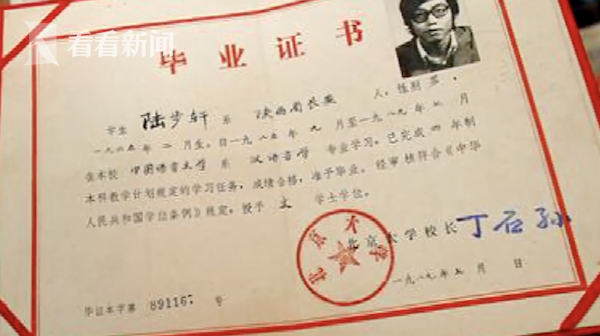 看看新闻
毕业证书
学生 陆步轩 系 陕西省长安 人，性别 男，
一九六五年 二 月生，自一九八五年 九 月至一九八九年 七 月
在本校 中国语言文学 系 汉语言学 专业学习，已完成四年制
本科教学计划规定的学习任务，成绩合格，准予毕业。经审核符合《中华
人民共和国学位条例》规定，授予 文 学士学位。
北京大学
北京大学校长 丁石孙
一九八九年七 月 日
毕证本字第 891167 号